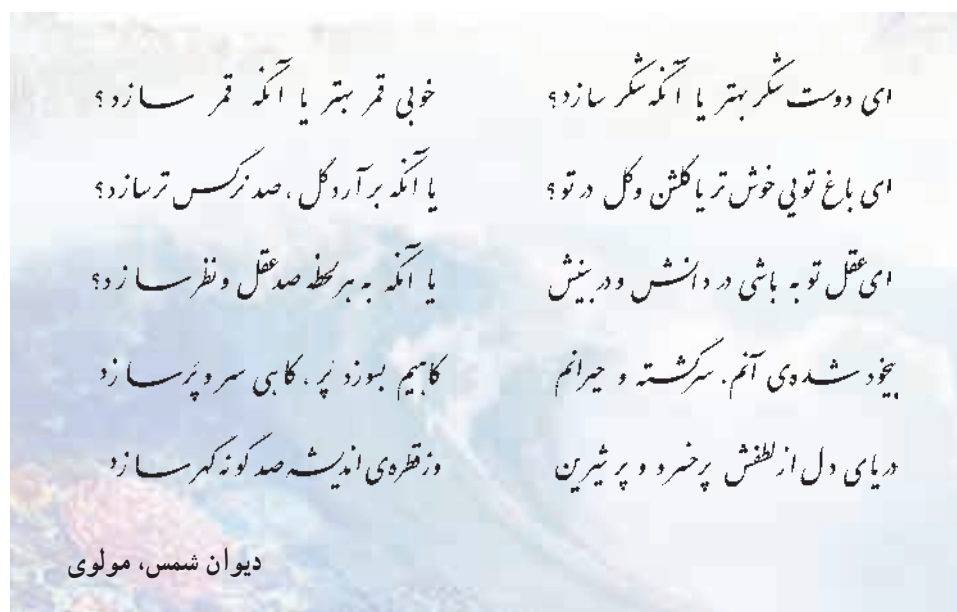 ای دوست شکر بهتر یا آنکه شکر سازد؟ خوبی قمر بهتر یا آنکه قمر سازد؟
ای باغ تویی خوش تر یا گلشن و گل در تو؟ یا آنکه بر آرد گل، صد نرگس تر سازد؟
ای عقل تو به باشی در دانش و در بینش یا آنکه به هر لحظه صد عقل و نظر سازد؟
بیخود شده‌ی آنم، سرگشته و حیرانم گاهیم بسوزد پَر، گاهی سر و پَر سازد
دریای دل از لطفش پر خسرو و پر شیرین وز قطره‌ی اندیشه صد گونه گهر سازد
دیوان شمس، مولوی